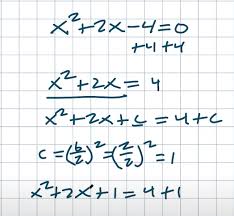 x²+2x-4=0
+4 +4
x²+2x=4
x²+2x+c=4+c
c=(b/2)²=(2/2)²=1
x²+2x+1=4+1